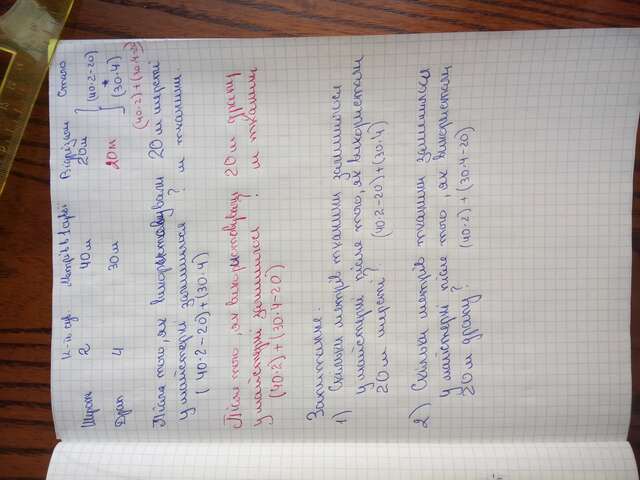 К-ть сув. Метрів в 1 сувої Відрізали Стало
Шерсть 2 40м 20м (40·2-20)
Драп 4 30м 20м (30·4)
(40·2)+(30·4-20)
Після того, як використовували 20 м шерсті
у майстерні залишилося ? м тканини.
(40·2-20)+(30·4)
Після того, як використовували 20 м драпу
у майстерні залишилося ? м тканини
(40·2)+(30·4-20)
Запитання:
1) Скільки метрів тканини залишилося
у майстерні після того, як використали
20 м шерсті? (40·2-20)+(30·4)
2) Скільки метрів тканини залишилося
у майстерні після того, як використали
20 м драпу? (40·2)+(30·4-20)